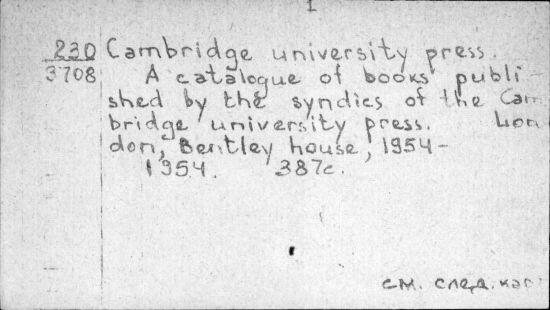 1
230 Cambridge university press.
3708 A catalogue of books publi-
shed by the syndics of the Cam
bridge university press. Lon
don, Bentley house, 1954-
1954. 387c.
см. след. кар